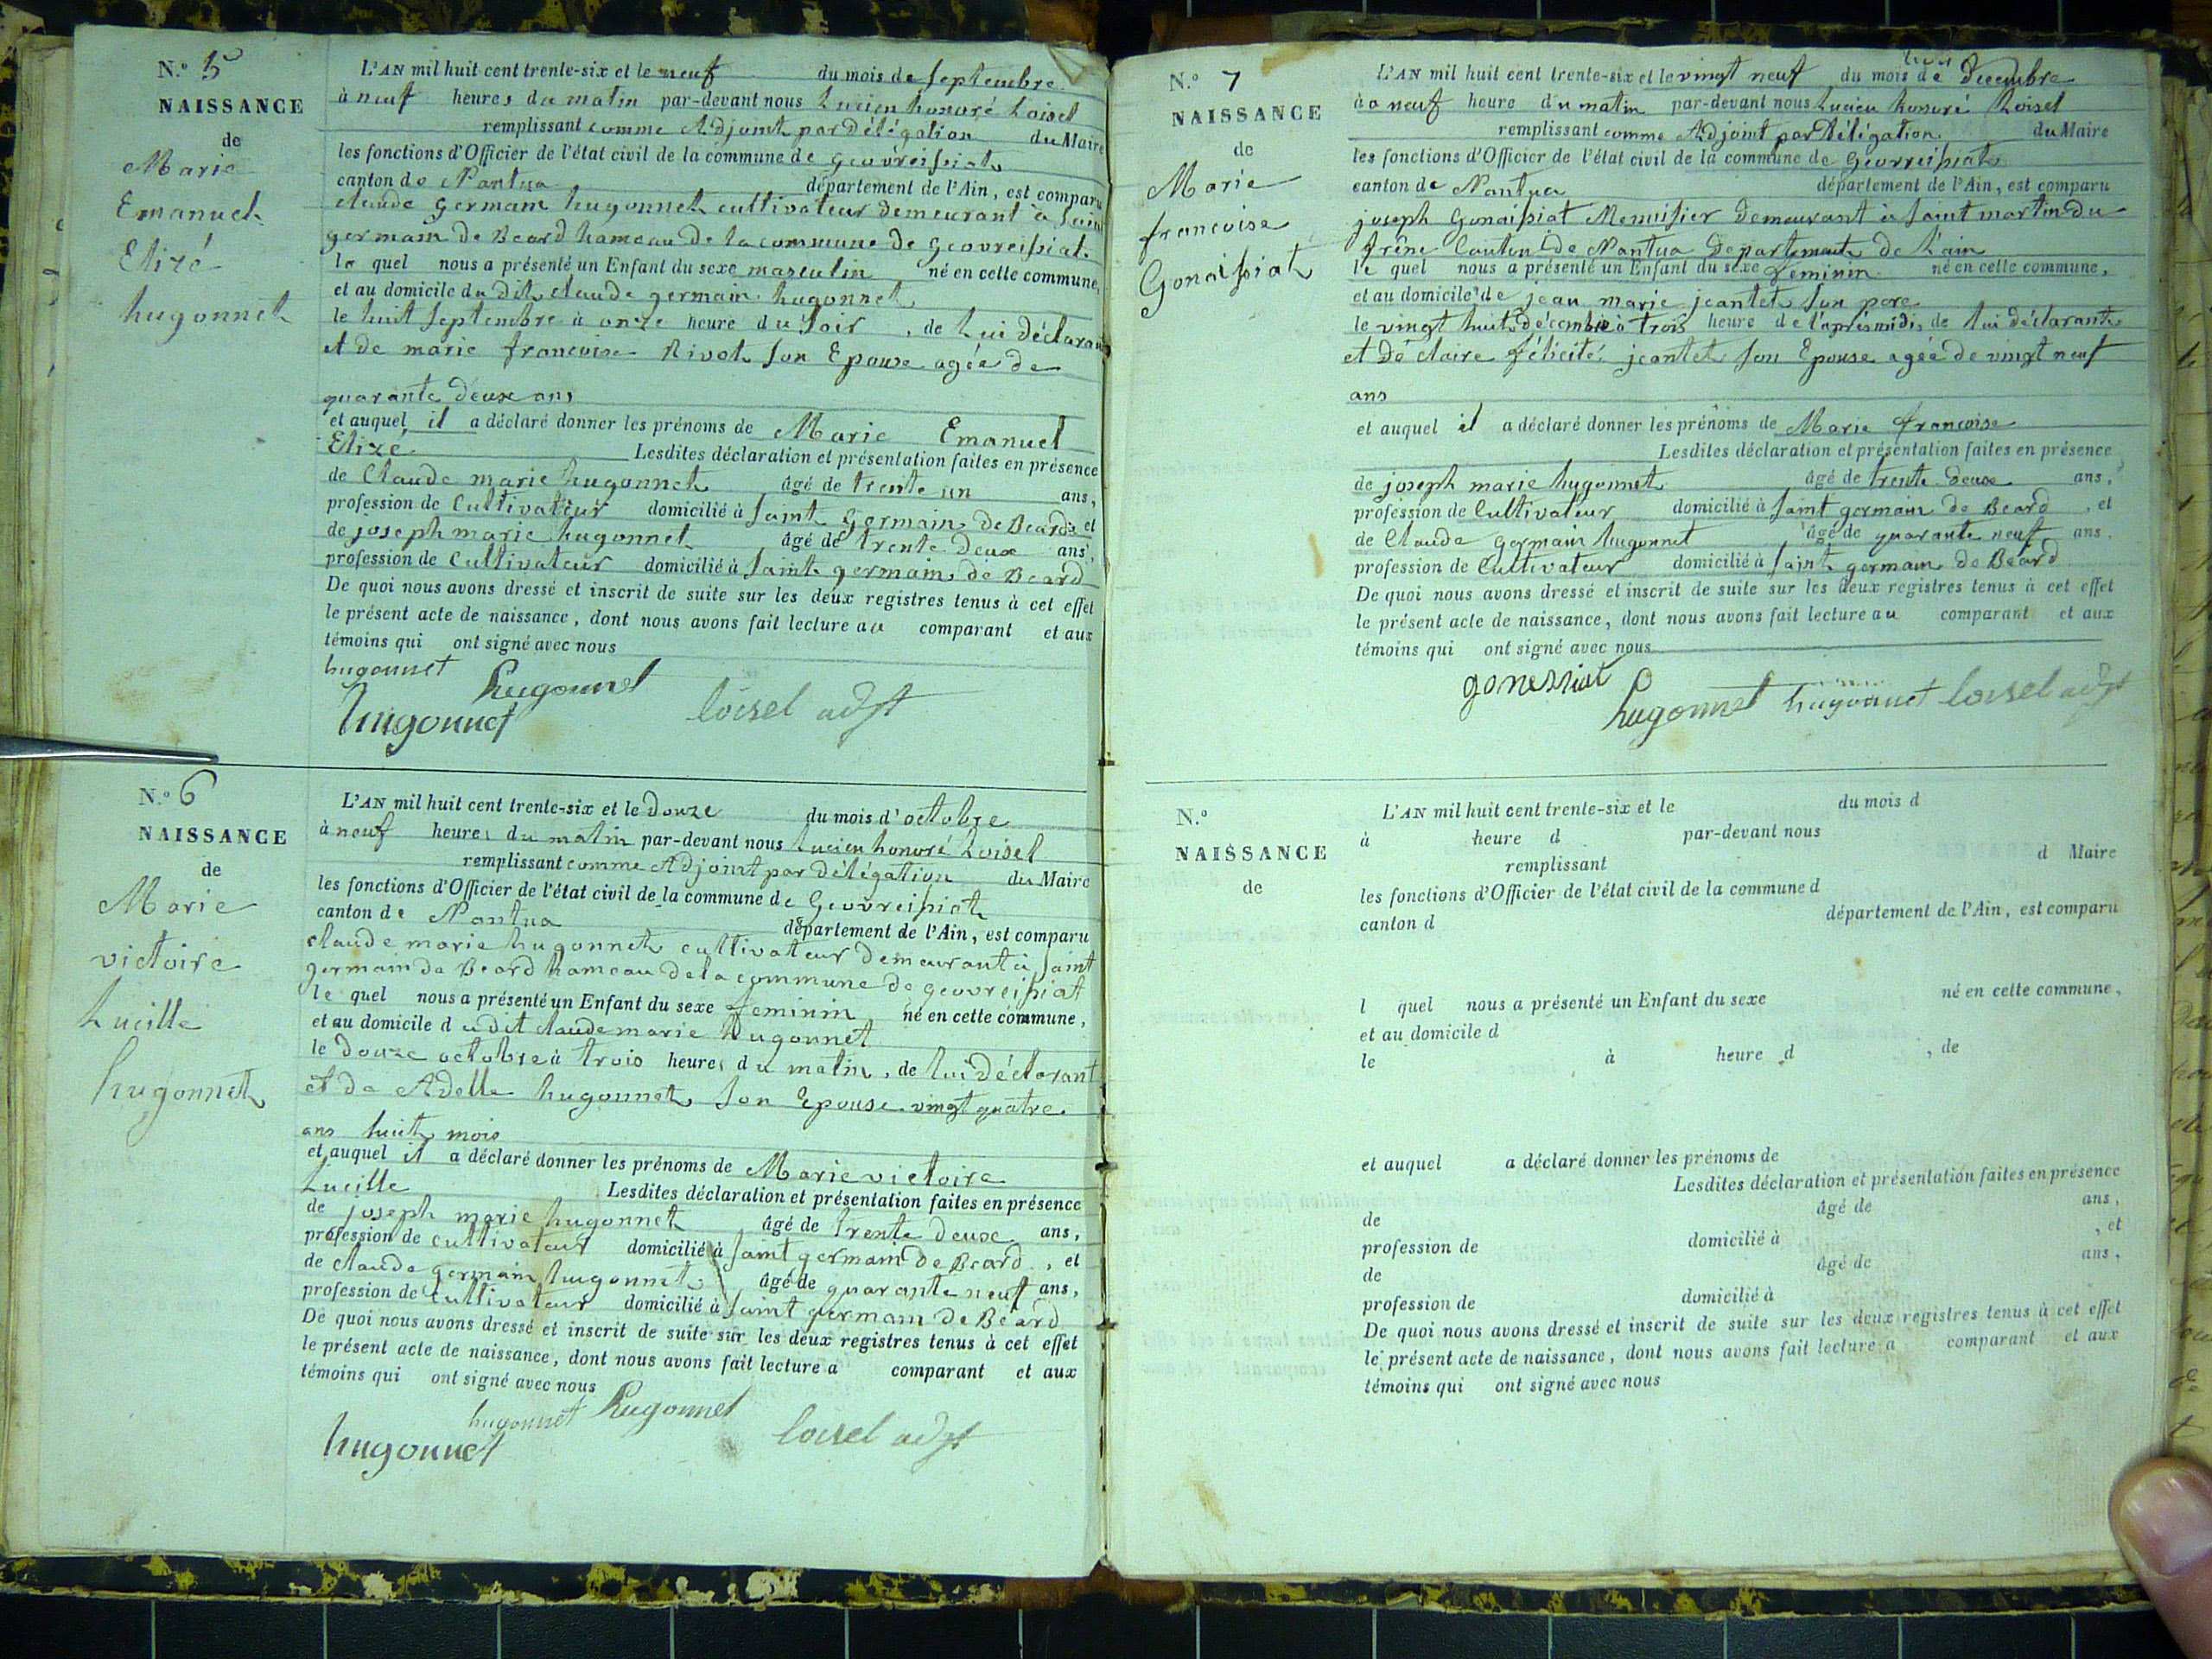 N.° 5
NAISSANCE
de
Marie
Emanuel
Elizé
hugonnet
L'AN mil huit cent trente-six et le neuf du mois de septembre
à neuf heures du matin par-devant nous Lucien honoré Loisel
remplissant comme Adjoint par délégation du Maire
les fonctions d'Officier de l'état civil de la commune de Geovreissiat
canton de Nantua département de l'Ain, est comparu
claude germain hugonnet cultivateur demeurant à saint
germain de Beard hameau de la commune de geovreissiat
le quel nous a présenté un Enfant du sexe masculin né en cette commune,
et au domicile du dit claude germain hugonnet
le huit septembre à onze heure du soir, de lui déclarant
et de marie francoise Rivot son Epouse agée de
quarante deux ans
et auquel il a déclaré donner les prénoms de Marie Emanuel
Elizé Lesdites déclaration et présentation faites en présence
de Claude marie hugonnet âgé de trente un ans,
profession de Cultivateur domicilié à saint Germain de Beard et
de joseph marie hugonnet âgé de trente deux ans,
profession de Cultivateur domicilié à saint germain de Beard
De quoi nous avons dressé et inscrit de suite sur les deux registres tenus à cet effet
le présent acte de naissance, dont nous avons fait lecture au comparant et aux
témoins qui ont signé avec nous
hugonnet hugonnet
hugonnet loisel adjt
N.° 6
NAISSANCE
de
Marie
victoire
Lucille
hugonnet
L'AN mil huit cent trente-six et le douze du mois d'octobre
à neuf heures du matin par-devant nous Lucien honoré Loisel
remplissant comme Adjoint par délégation du Maire
les fonctions d'Officier de l'état civil de la commune de Geovreissiat
canton de Nantua département de l'Ain, est comparu
claude marie hugonnet cultivateur demeurant à saint
germain de Beard hameau de la commune de geovreissiat
le quel nous a présenté un Enfant du sexe feminin né en cette commune,
et au domicile du dit claude marie hugonnet
le douze octobre à trois heures du matin, de lui déclarant
et de Adelle hugonnet son Epouse vingt quatre
ans huit mois
et auquel il a déclaré donner les prénoms de Marie victoire
Lucille Lesdites déclaration et présentation faites en présence
de joseph marie hugonnet âgé de trente deux ans,
profession de cultivateur domicilié à saint germain de Beard, et
de claude germain hugonnet âgé de quarante neuf ans,
profession de Cultivateur domicilié à saint germain de Béard
De quoi nous avons dressé et inscrit de suite sur les deux registres tenus à cet effet
le présent acte de naissance, dont nous avons fait lecture a comparant et aux
témoins qui ont signé avec nous
hugonnet hugonnet
hugonnet loisel adjt
N.° 7
NAISSANCE
de
Marie
francoise
Gonaissiat
L'AN mil huit cent trente-six et le vingt neuf du mois de Decembre
à o neuf heure du matin par-devant nous Lucien honoré Loisel
remplissant comme Adjoint par délégation du Maire
les fonctions d'Officier de l'état civil de la commune de Geovreissiat
canton de Nantua département de l'Ain, est comparu
joseph Gonaissiat Menuisier demeurant à saint martin du
frêne Canton de Nantua Departement de L'ain
le quel nous a présenté un Enfant du sexe feminin né en cette commune,
et au domicile de jean marie jeantet son pere
le vingt huit décembre à trois heure de l'aprés midi, de lui déclarant
et de claire félicité jeantet son Epouse agée de vingt neuf
ans
et auquel il a déclaré donner les prénoms de Marie francoise
Lesdites déclaration et présentation faites en présence
de joseph marie hugonnet âgé de trente deux ans,
profession de Cultivateur domicilié à saint germain de Beard, et
de Claude germain hugonnet âgé de quarante neuf ans,
profession de Cultivateur domicilié à saint germain de Béard
De quoi nous avons dressé et inscrit de suite sur les deux registres tenus à cet effet
le présent acte de naissance, dont nous avons fait lecture au comparant et aux
témoins qui ont signé avec nous
gonessiat hugonnet hugonnet loisel adjt
N.°
NAISSANCE
de
L'AN mil huit cent trente-six et le du mois d
à heure d par-devant nous
remplissant d Maire
les fonctions d'Officier de l'état civil de la commune d
canton d département de l'Ain, est comparu
l quel nous a présenté un Enfant du sexe né en cette commune,
et au domicile d
le à heure d , de
et auquel a déclaré donner les prénoms de
Lesdites déclaration et présentation faites en présence
de âgé de ans,
profession de domicilié à , et
de âgé de ans,
profession de domicilié à
De quoi nous avons dressé et inscrit de suite sur les deux registres tenus à cet effet
le présent acte de naissance, dont nous avons fait lecture a comparant et aux
témoins qui ont signé avec nous